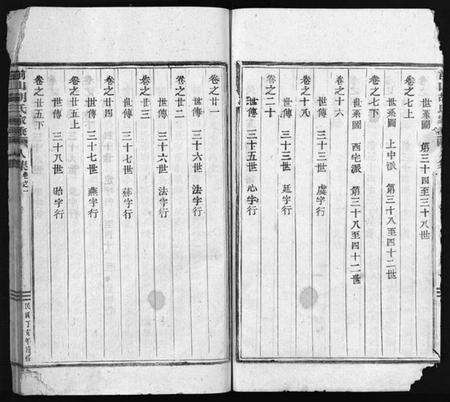 卷之七上
世系圖 第三十四至三十八世
世系圖 上中派 第三十八至四十二世
卷之七下
世系圖 西宅派 第三十八至四十二世
卷之十六
世傳 三十三世 虞字行
卷之十八
世傳 三十三世 廷字行
卷之二十
世傳 三十五世 心字行
卷之廿一
世傳 三十六世 法字行
卷之廿二
世傳 三十六世 法字行
卷之廿三
世傳 三十七世 字行
卷之廿四
世傳 三十七世 燕字行
卷之廿五上
世傳 三十八世 貽字行
卷之廿五下
前山胡氏家 卷之一
民國丁亥年